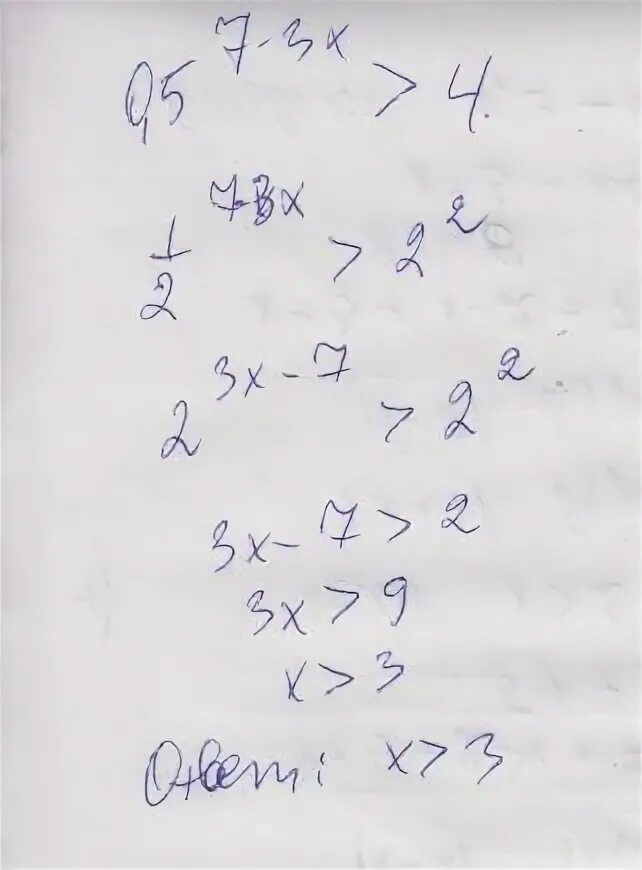 0,5^{7-3x} > 4
1/2^{7-3x} > 2^2
2^{3x-7} > 2^2
3x-7>2
3x>9
x>3
Ответ: x>3